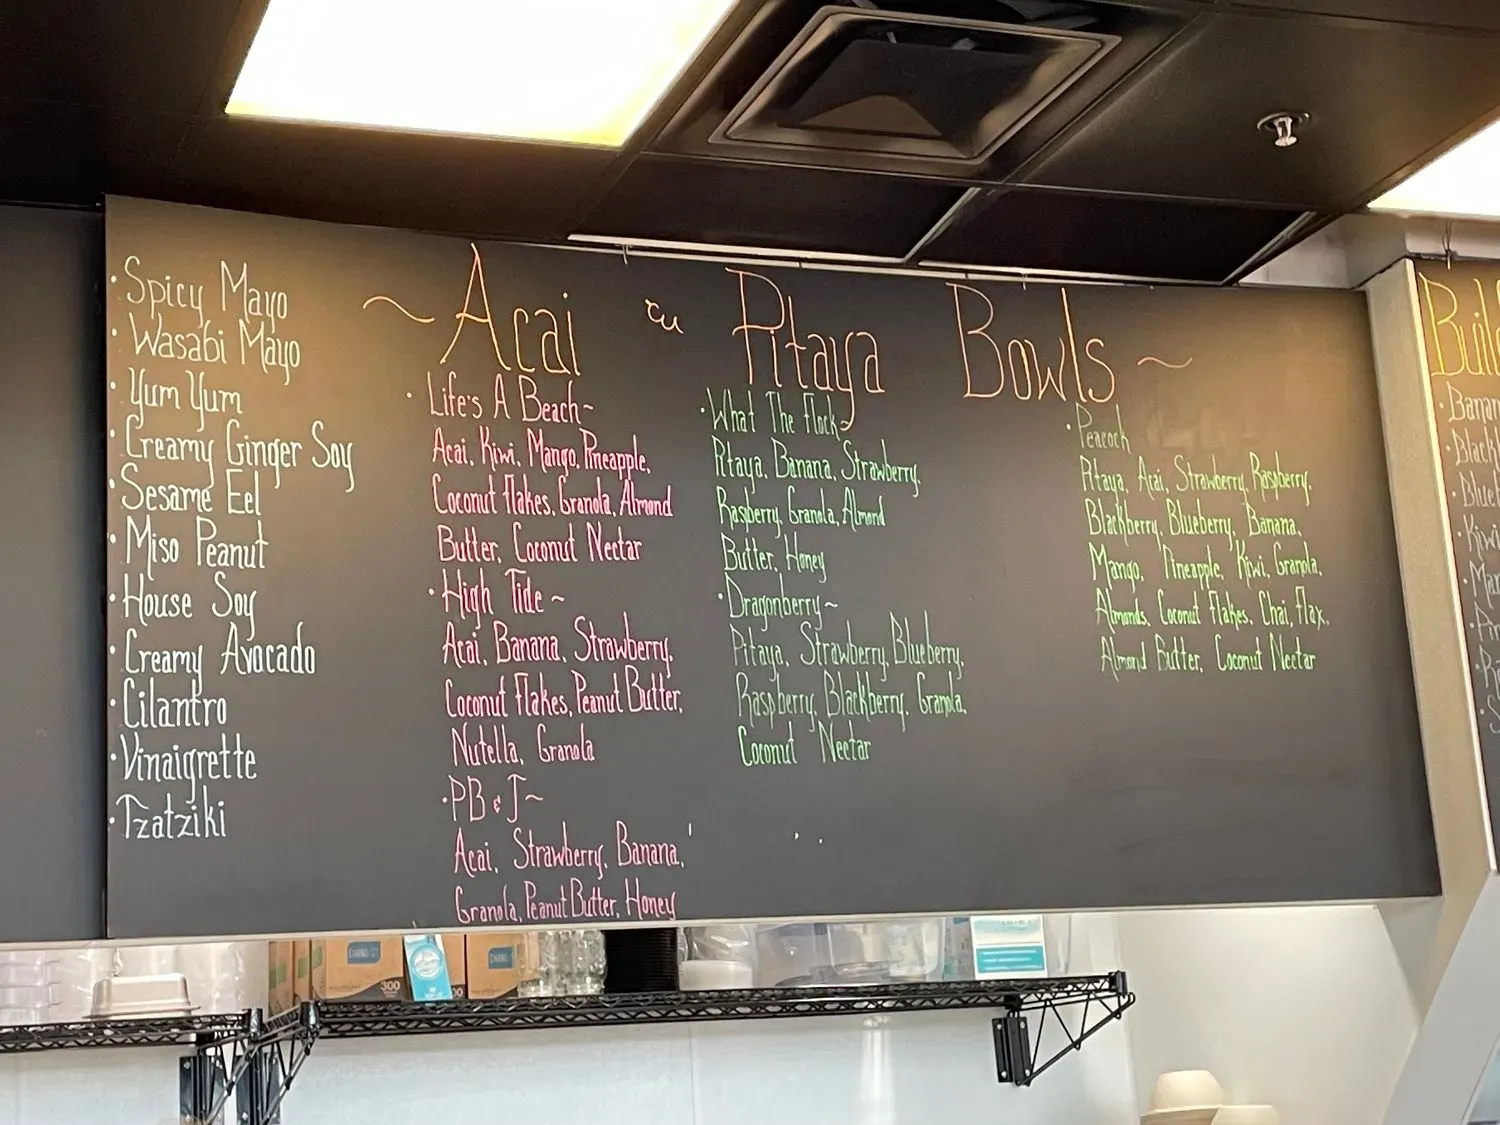 · Spicy Mayo
· Wasabi Mayo
· Yum Yum
· Creamy Ginger Soy
· Sesame Eel
· Miso Peanut
· House Soy
· Creamy Avocado
· Cilantro
· Vinaigrette
· Tzatziki
~ Acai & Pitaya Bowls ~
· Life's A Beach~
Acai, Kiwi, Mango, Pineapple,
Coconut Flakes, Granola, Almond
Butter, Coconut Nectar
· High Tide ~
Acai, Banana, Strawberry,
Coconut Flakes, Peanut Butter,
Nutella, Granola
· PB & J~
Acai, Strawberry, Banana,
Granola, Peanut Butter, Honey
· What The Flock~
Pitaya, Banana, Strawberry,
Raspberry, Granola, Almond
Butter, Honey
· Dragonberry~
Pitaya, Strawberry, Blueberry,
Raspberry, Blackberry, Granola,
Coconut Nectar
· Peacock
Pitaya, Acai, Strawberry, Raspberry,
Blackberry, Blueberry, Banana,
Mango, Pineapple, Kiwi, Granola,
Almonds, Coconut Flakes, Chai, Flax,
Almond Butter, Coconut Nectar
300